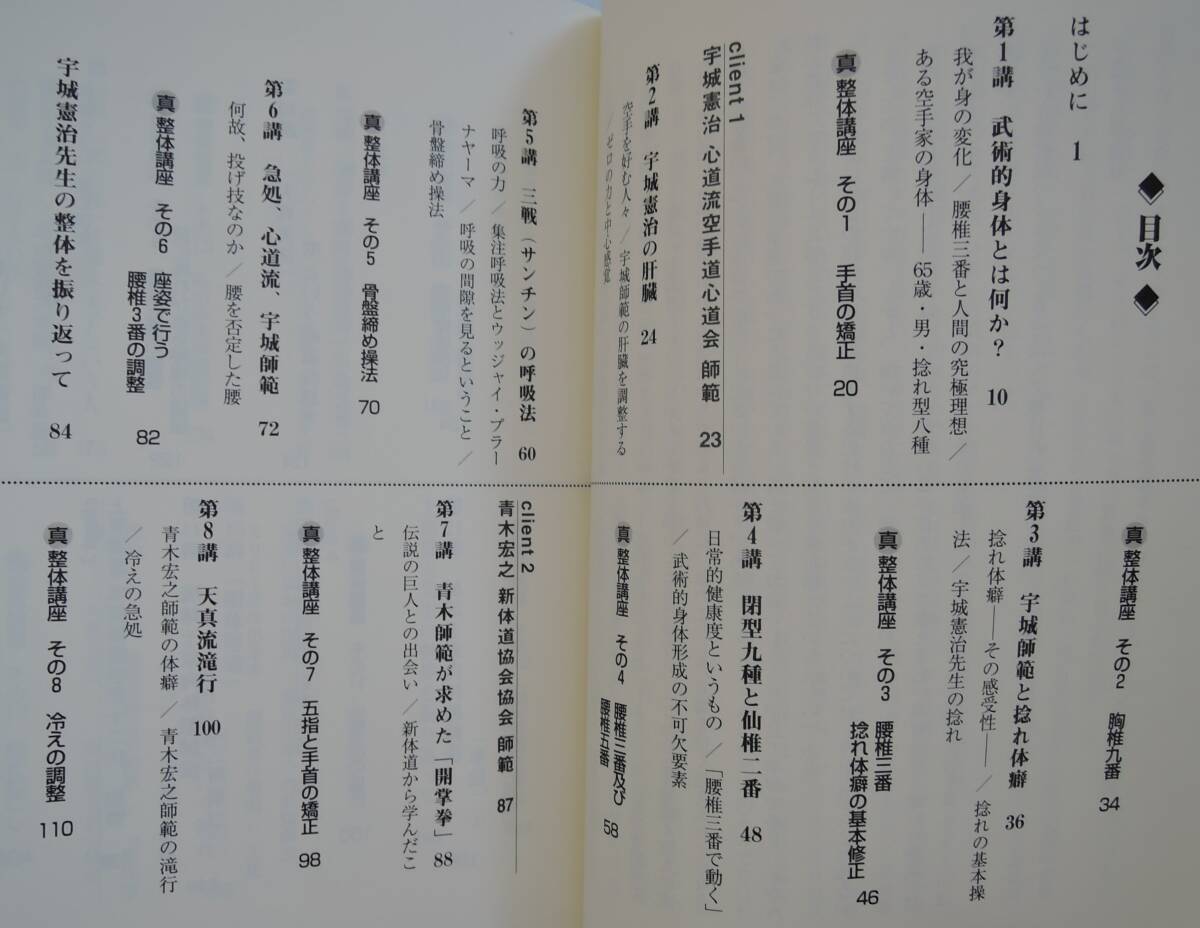 ◆ 目次 ◆
はじめに 1
第1講 武術的身体とは何か? 10
我が身の変化／腰椎三番と人間の究極理想／
ある空手家の身体——65歳・男・捻れ型八種
真 整体講座 その1 手首の矯正 20
client 1
宇城憲治 心道流空手道心道会 師範 23
第2講 宇城憲治の肝臓 24
空手を好む人々／宇城師範の肝臓を調整する
／ゼロの力と中心感覚
真 整体講座 その2 胸椎九番 34
第3講 宇城師範と捻れ体癖 36
捻れ体癖——その感受性——／捻れの基本操
法／宇城憲治先生の捻れ
真 整体講座 その3 腰椎三番
捻れ体癖の基本修正 46
第4講 閉型九種と仙椎二番 48
日常的健康度というもの／「腰椎三番で動く」
／武術的身体形成の不可欠要素
真 整体講座 その4 腰椎三番及び
腰椎五番 58
第5講 三戦（サンチン）の呼吸法 60
呼吸の力／集注呼吸法とウッジャイ・プラー
ナヤーマ／呼吸の間隙を見るということ／
骨盤締め操法
真 整体講座 その5 骨盤締め操法 70
第6講 急処、心道流、宇城師範 72
何故、投げ技なのか／腰を否定した腰
真 整体講座 その6 座姿で行う
腰椎3番の調整 82
宇城憲治先生の整体を振り返って 84
client 2
青木宏之 新体道協会協会 師範 87
第7講 青木師範が求めた「開掌拳」 88
伝説の巨人との出会い／新体道から学んだこ
と
真 整体講座 その7 五指と手首の矯正 98
第8講 天真流滝行 100
青木宏之師範の体癖／青木宏之師範の滝行
／冷えの急処
真 整体講座 その8 冷えの調整 110